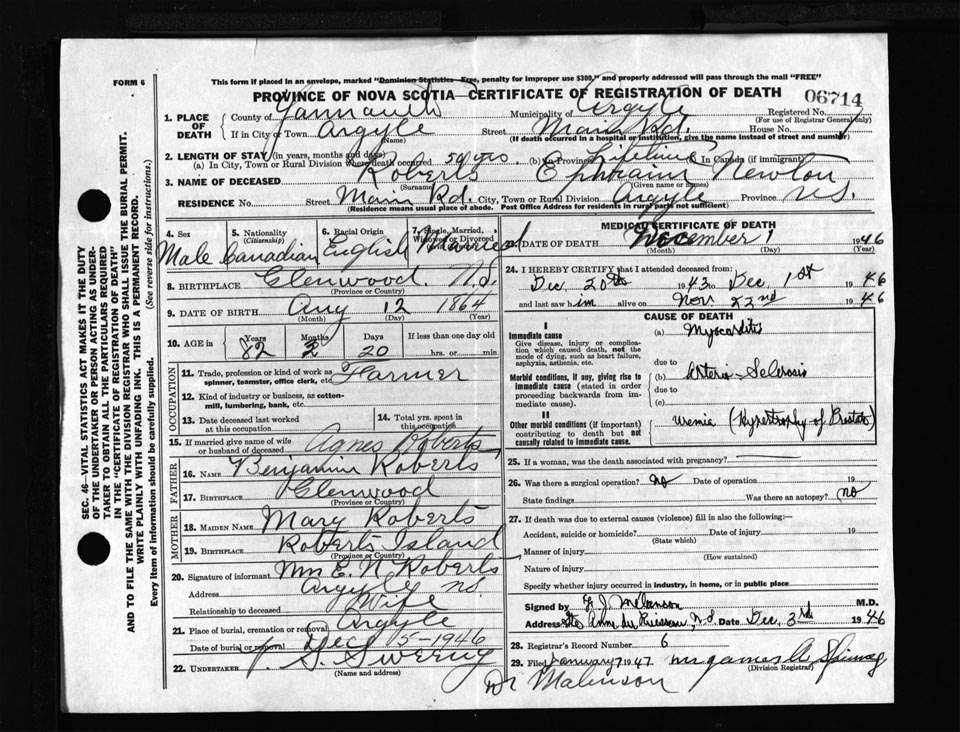 FORM 6
This form if placed in an envelope, marked "Dominion Statistics—Free, penalty for improper use $300," and properly addressed will pass through the mail "FREE"
PROVINCE OF NOVA SCOTIA—CERTIFICATE OF REGISTRATION OF DEATH
06714
1. PLACE OF DEATH
County of Yarmouth Municipality of Argyle Registered No.
(For use of Registrar General only)
If in City or Town Argyle Street Main Rd. House No.
(Name) (If death occurred in a hospital or institution, give the name instead of street and number)
2. LENGTH OF STAY (in years, months and days)
(a) In City, Town or Rural Division where death occurred 50 yrs (b) In Province Lifetime In Canada (if immigrant)
3. NAME OF DECEASED Roberts Ephraim Newton
(Surname) (Given name or names)
RESIDENCE No. Street Main Rd. City, Town or Rural Division Argyle Province N.S.
(Residence means usual place of abode. Post Office Address for residents in rural parts not sufficient)
4. Sex Male
5. Nationality (Citizenship) Canadian
6. Racial Origin English
7. Single, Married, Widowed or Divorced Married
8. BIRTHPLACE Glenwood N.S.
(Province or Country)
9. DATE OF BIRTH Aug 12 1864
(Month) (Day) (Year)
10. AGE in Years Months Days If less than one day old
82 2 20 hrs. or min.
OCCUPATION
11. Trade, profession or kind of work as spinner, teamster, office clerk, etc. Farmer
12. Kind of industry or business, as cotton-mill, lumbering, bank, etc.
13. Date deceased last worked at this occupation
14. Total yrs. spent in this occupation
15. If married give name of wife or husband of deceased Agnes Roberts
FATHER
16. NAME Benjamin Roberts
17. BIRTHPLACE Glenwood
MOTHER
18. MAIDEN NAME Mary Roberts
19. BIRTHPLACE Roberts Island
(Province or Country)
20. Signature of informant Mrs E. N. Roberts
Address Argyle N.S.
Relationship to deceased Wife
21. Place of burial, cremation or removal Argyle
Date of burial or removal Dec 5-1946
22. UNDERTAKER S. Sweeny
(Name and address)
MEDICAL CERTIFICATE OF DEATH
DATE OF DEATH December 1 1946
(Day) (Year)
24. I HEREBY CERTIFY that I attended deceased from:
Dec. 20th 1943 to Dec. 1st 1946
and last saw him alive on Nov. 22nd 1946
CAUSE OF DEATH
I
Immediate cause
Give disease, injury or complication which caused death, not the mode of dying, such as heart failure, asphyxia, asthenia, etc.
(a) Myocarditis
due to
Morbid conditions, if any, giving rise to immediate cause (stated in order proceeding backwards from immediate cause).
(b) Arterio-Sclerosis
due to
(c)
II
Other morbid conditions (if important) contributing to death but not causally related to immediate cause.
Uremia (Hypertrophy of Prostate)
25. If a woman, was the death associated with pregnancy?
26. Was there a surgical operation? No Date of operation 19
State findings Was there an autopsy? No
27. If death was due to external causes (violence) fill in also the following:—
Accident, suicide or homicide? Date of injury 19
(State which)
Manner of injury
(How sustained)
Nature of injury
Specify whether injury occurred in industry, in home, or in public place
Signed by M.D.
Address Ste Anne du Ruisseau, N.S. Date Dec. 3rd 1946
28. Registrar's Record Number 6
29. Filed January 7 1947 Mrs James A Spinney
(Division Registrar)
Dr Malinson
SEC. 46—VITAL STATISTICS ACT MAKES IT THE DUTY OF THE UNDERTAKER OR PERSON ACTING AS UNDERTAKER TO OBTAIN ALL THE PARTICULARS REQUIRED IN THE "CERTIFICATE OF REGISTRATION OF DEATH" AND TO FILE THE SAME WITH THE DIVISION REGISTRAR WHO SHALL ISSUE THE BURIAL PERMIT.
WRITE PLAINLY WITH UNFADING INK. THIS IS A PERMANENT RECORD.
Every item of information should be carefully supplied. (See reverse side for instructions.)